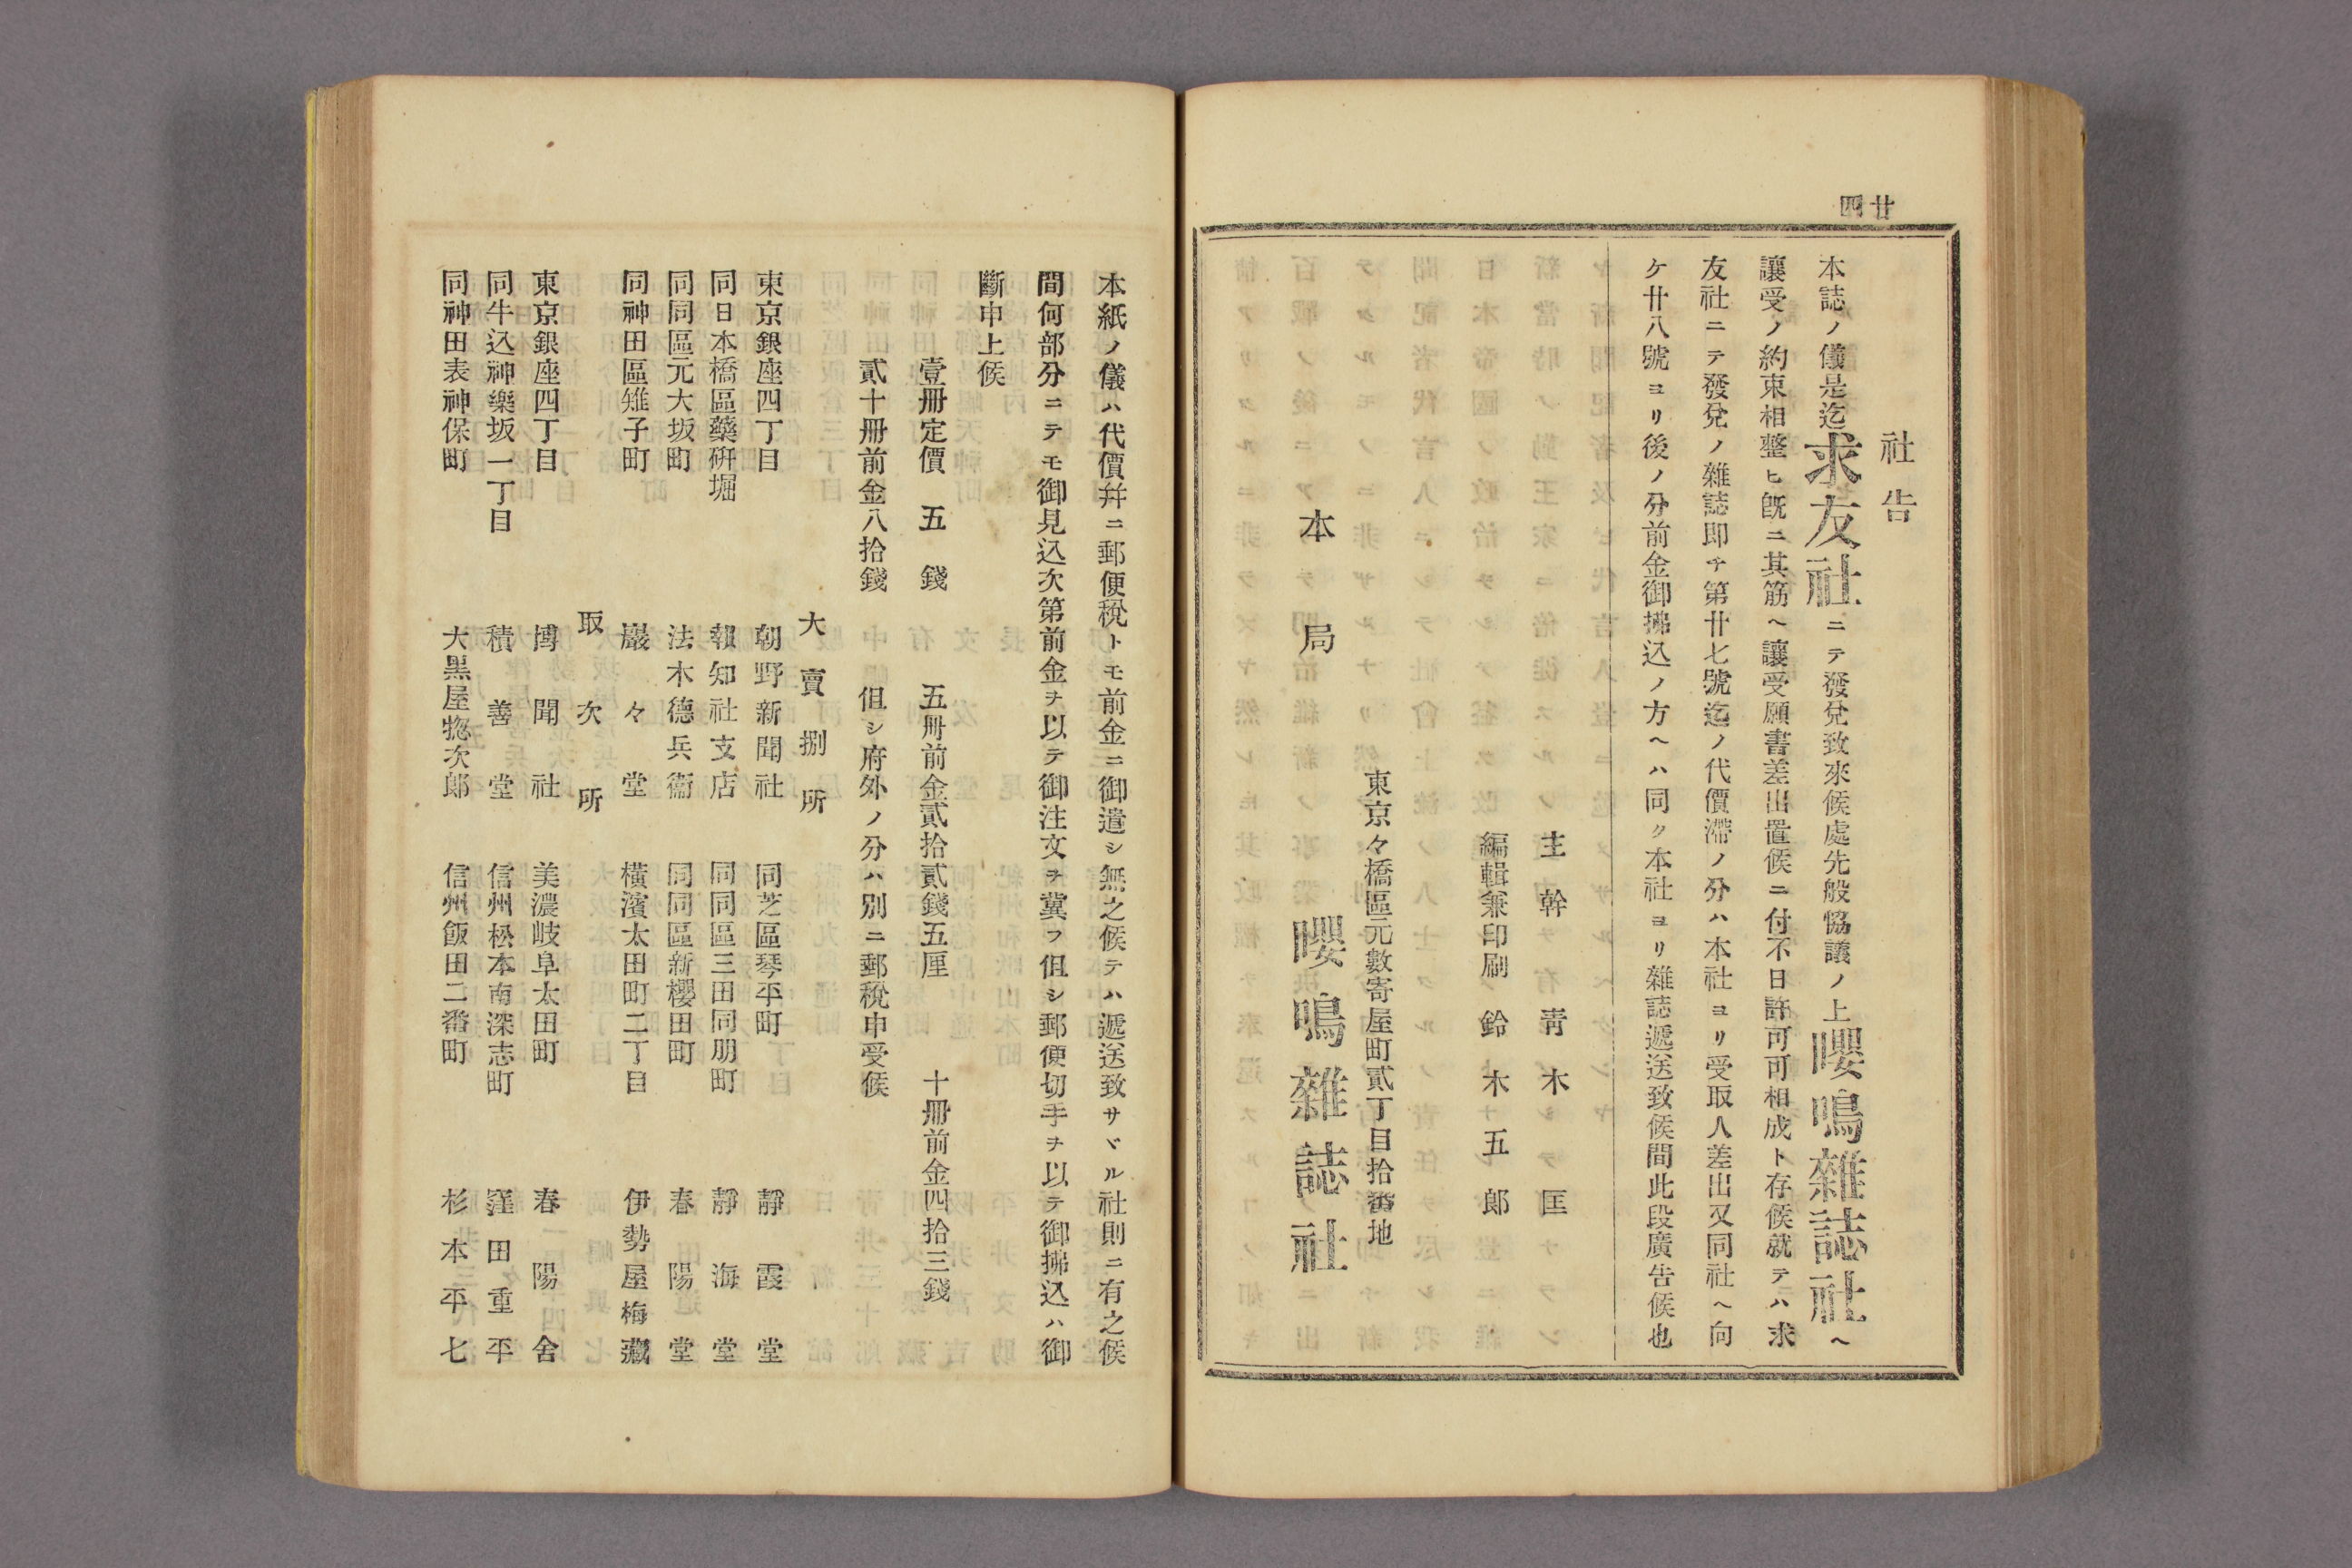 廿四
社告
本誌ノ儀是迄求友社ニテ發兌致來候處先般恊議ノ上嚶鳴雜誌社ヘ
讓受ノ約束相整ヒ旣ニ其筋ヘ讓受願書差出置候ニ付不日許可可相成ト存候就テハ求
友社ニテ發兌ノ雜誌即チ第廿七號迄ノ代價滯ノ分ハ本社ヨリ受取人差出又同社ヘ向
ケ廿八號ヨリ後ノ分前金御拂込ノ方ヘハ同ク本社ヨリ雜誌遞送致候間此段廣告候也
主幹 靑木匡
編輯兼印刷 鈴木五郎
東京々橋區元數寄屋町貳丁目拾番地
本局 嚶鳴雜誌社
本紙ノ儀ハ代價幷ニ郵便稅トモ前金ニ御遣シ無之候テハ遞送致サヾル社則ニ有之候
間何部分ニテモ御見込次第前金ヲ以テ御注文ヲ冀フ但シ郵便切手ヲ以テ御拂込ハ御
斷申上候
壹册定價 五錢 五册前金貳拾貳錢五厘 十册前金四拾三錢
貳十册前金八拾錢 但シ府外ノ分ハ別ニ郵稅申受候
大賣捌所
東京銀座四丁目 朝野新聞社 同芝區琴平町 靜霞堂
同日本橋區藥硏堀 報知社支店 同同區三田同朋町 靜海堂
同同區元大坂町 法木德兵衞 同同區新櫻田町 春陽堂
同神田區雉子町 巖々堂 橫濱太田町二丁目 伊勢屋梅藏
取次所
東京銀座四丁目 博聞社 美濃岐阜太田町 春陽舍
同牛込神樂坂一丁目 積善堂 信州松本南深志町 窪田重平
同神田表神保町 大黑屋惣次郎 信州飯田二番町 杉本平七